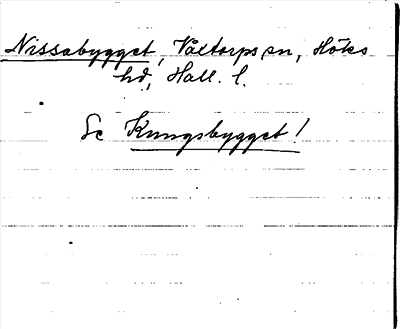 Nissabygget, Våxtorps sn, Höks
hd, Hall. l.
Se Kungsbygget!